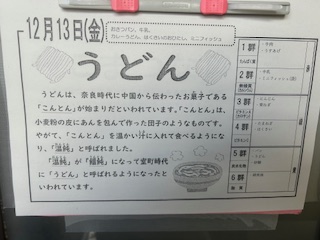 12月13日(金)
おさつパン、牛乳、
カレーうどん、はくさいのおひたし、ミニフィッシュ
うどん
うどんは、奈良時代に中国から伝わったお菓子である
「こんとん」が始まりだといわれています。「こんとん」は、
小麦粉の皮にあんを包んで作った団子のようなものです。
やがて、「こんとん」を温かい汁に入れて食べるようにな
り、「温飩」と呼ばれました。
「温飩」が「饂飩」になって室町時代
に「うどん」と呼ばれるようになったと
いわれています。
1群
2群
3群
4群
5群
6群